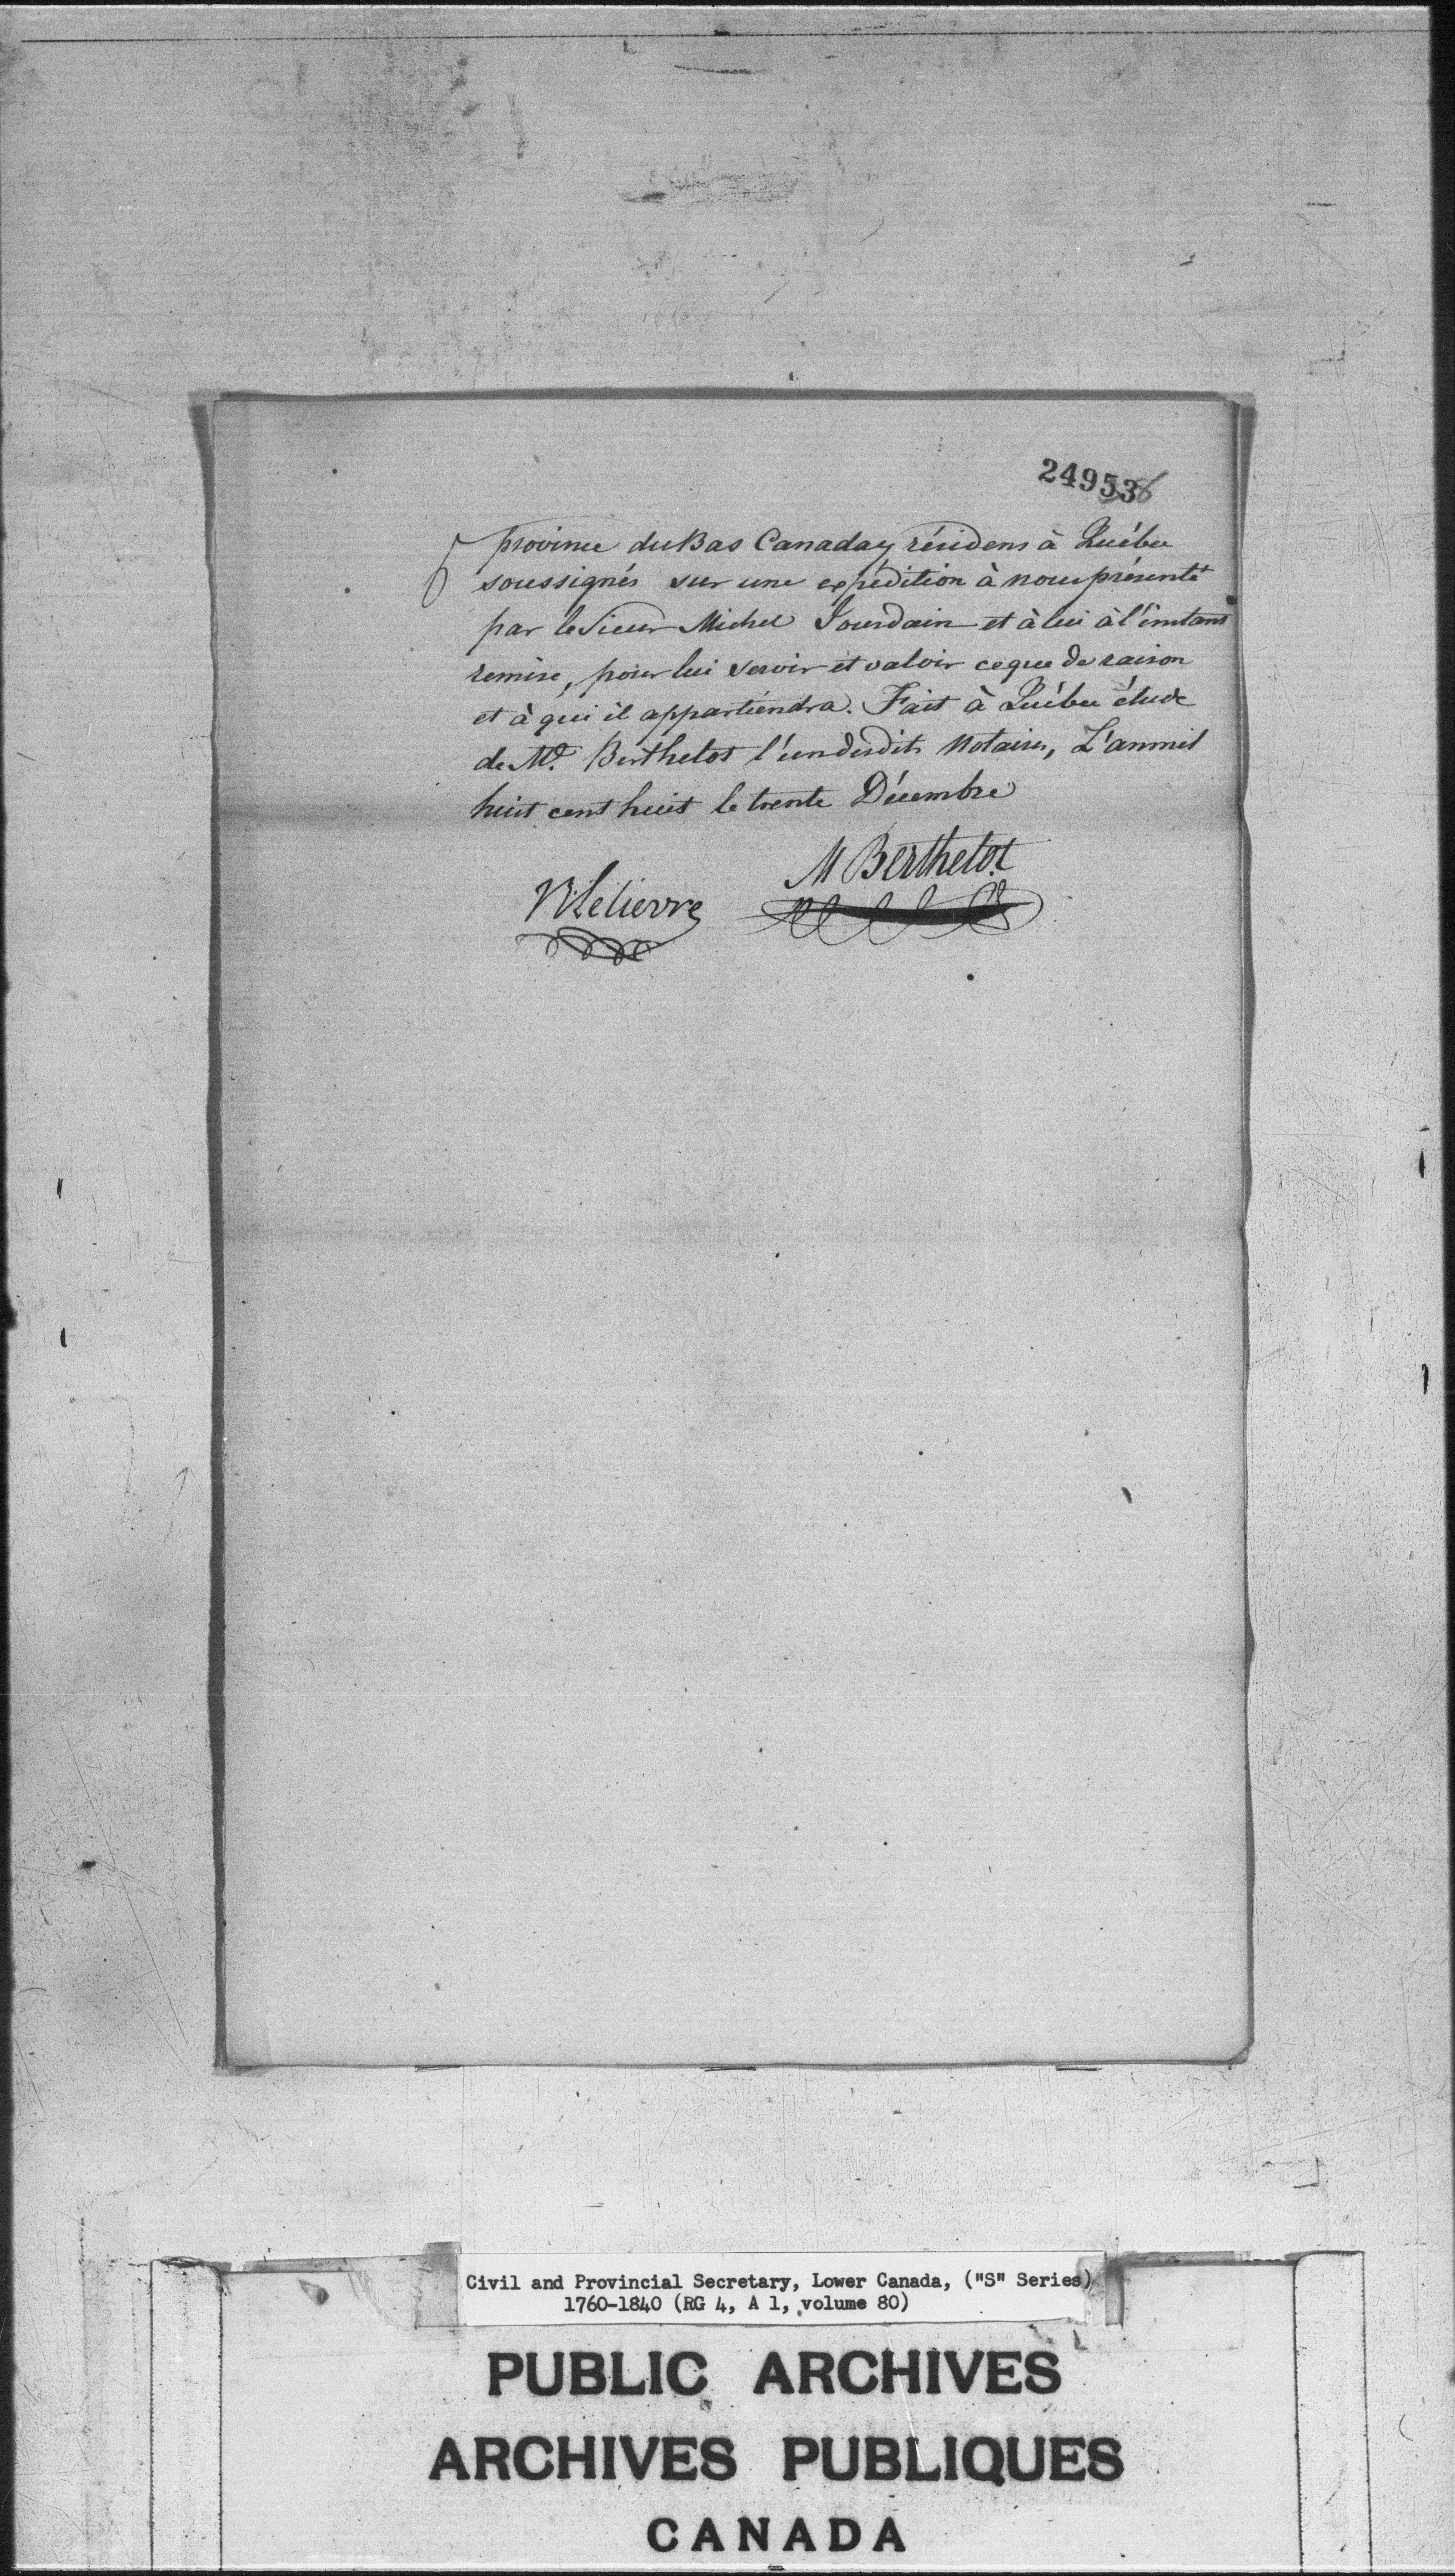 249538
province du Bas Canada y résidens à Québec
soussignés sur une expédition à nous présenté
par le Sieur Michel Jourdain et à lui à l'instant
remise, pour lui servir et valoir ce que de raison
et à qui il appartiendra. Fait à Québec étude
de Me. Berthelot l'un desdits Notaires, L'an mil
huit cent huit le trente Décembre
M Berthelot
R: Lelievre
Civil and Provincial Secretary, Lower Canada, ("S" Series)
1760-1840 (RG 4, A 1, volume 80)
PUBLIC ARCHIVES
ARCHIVES PUBLIQUES
CANADA